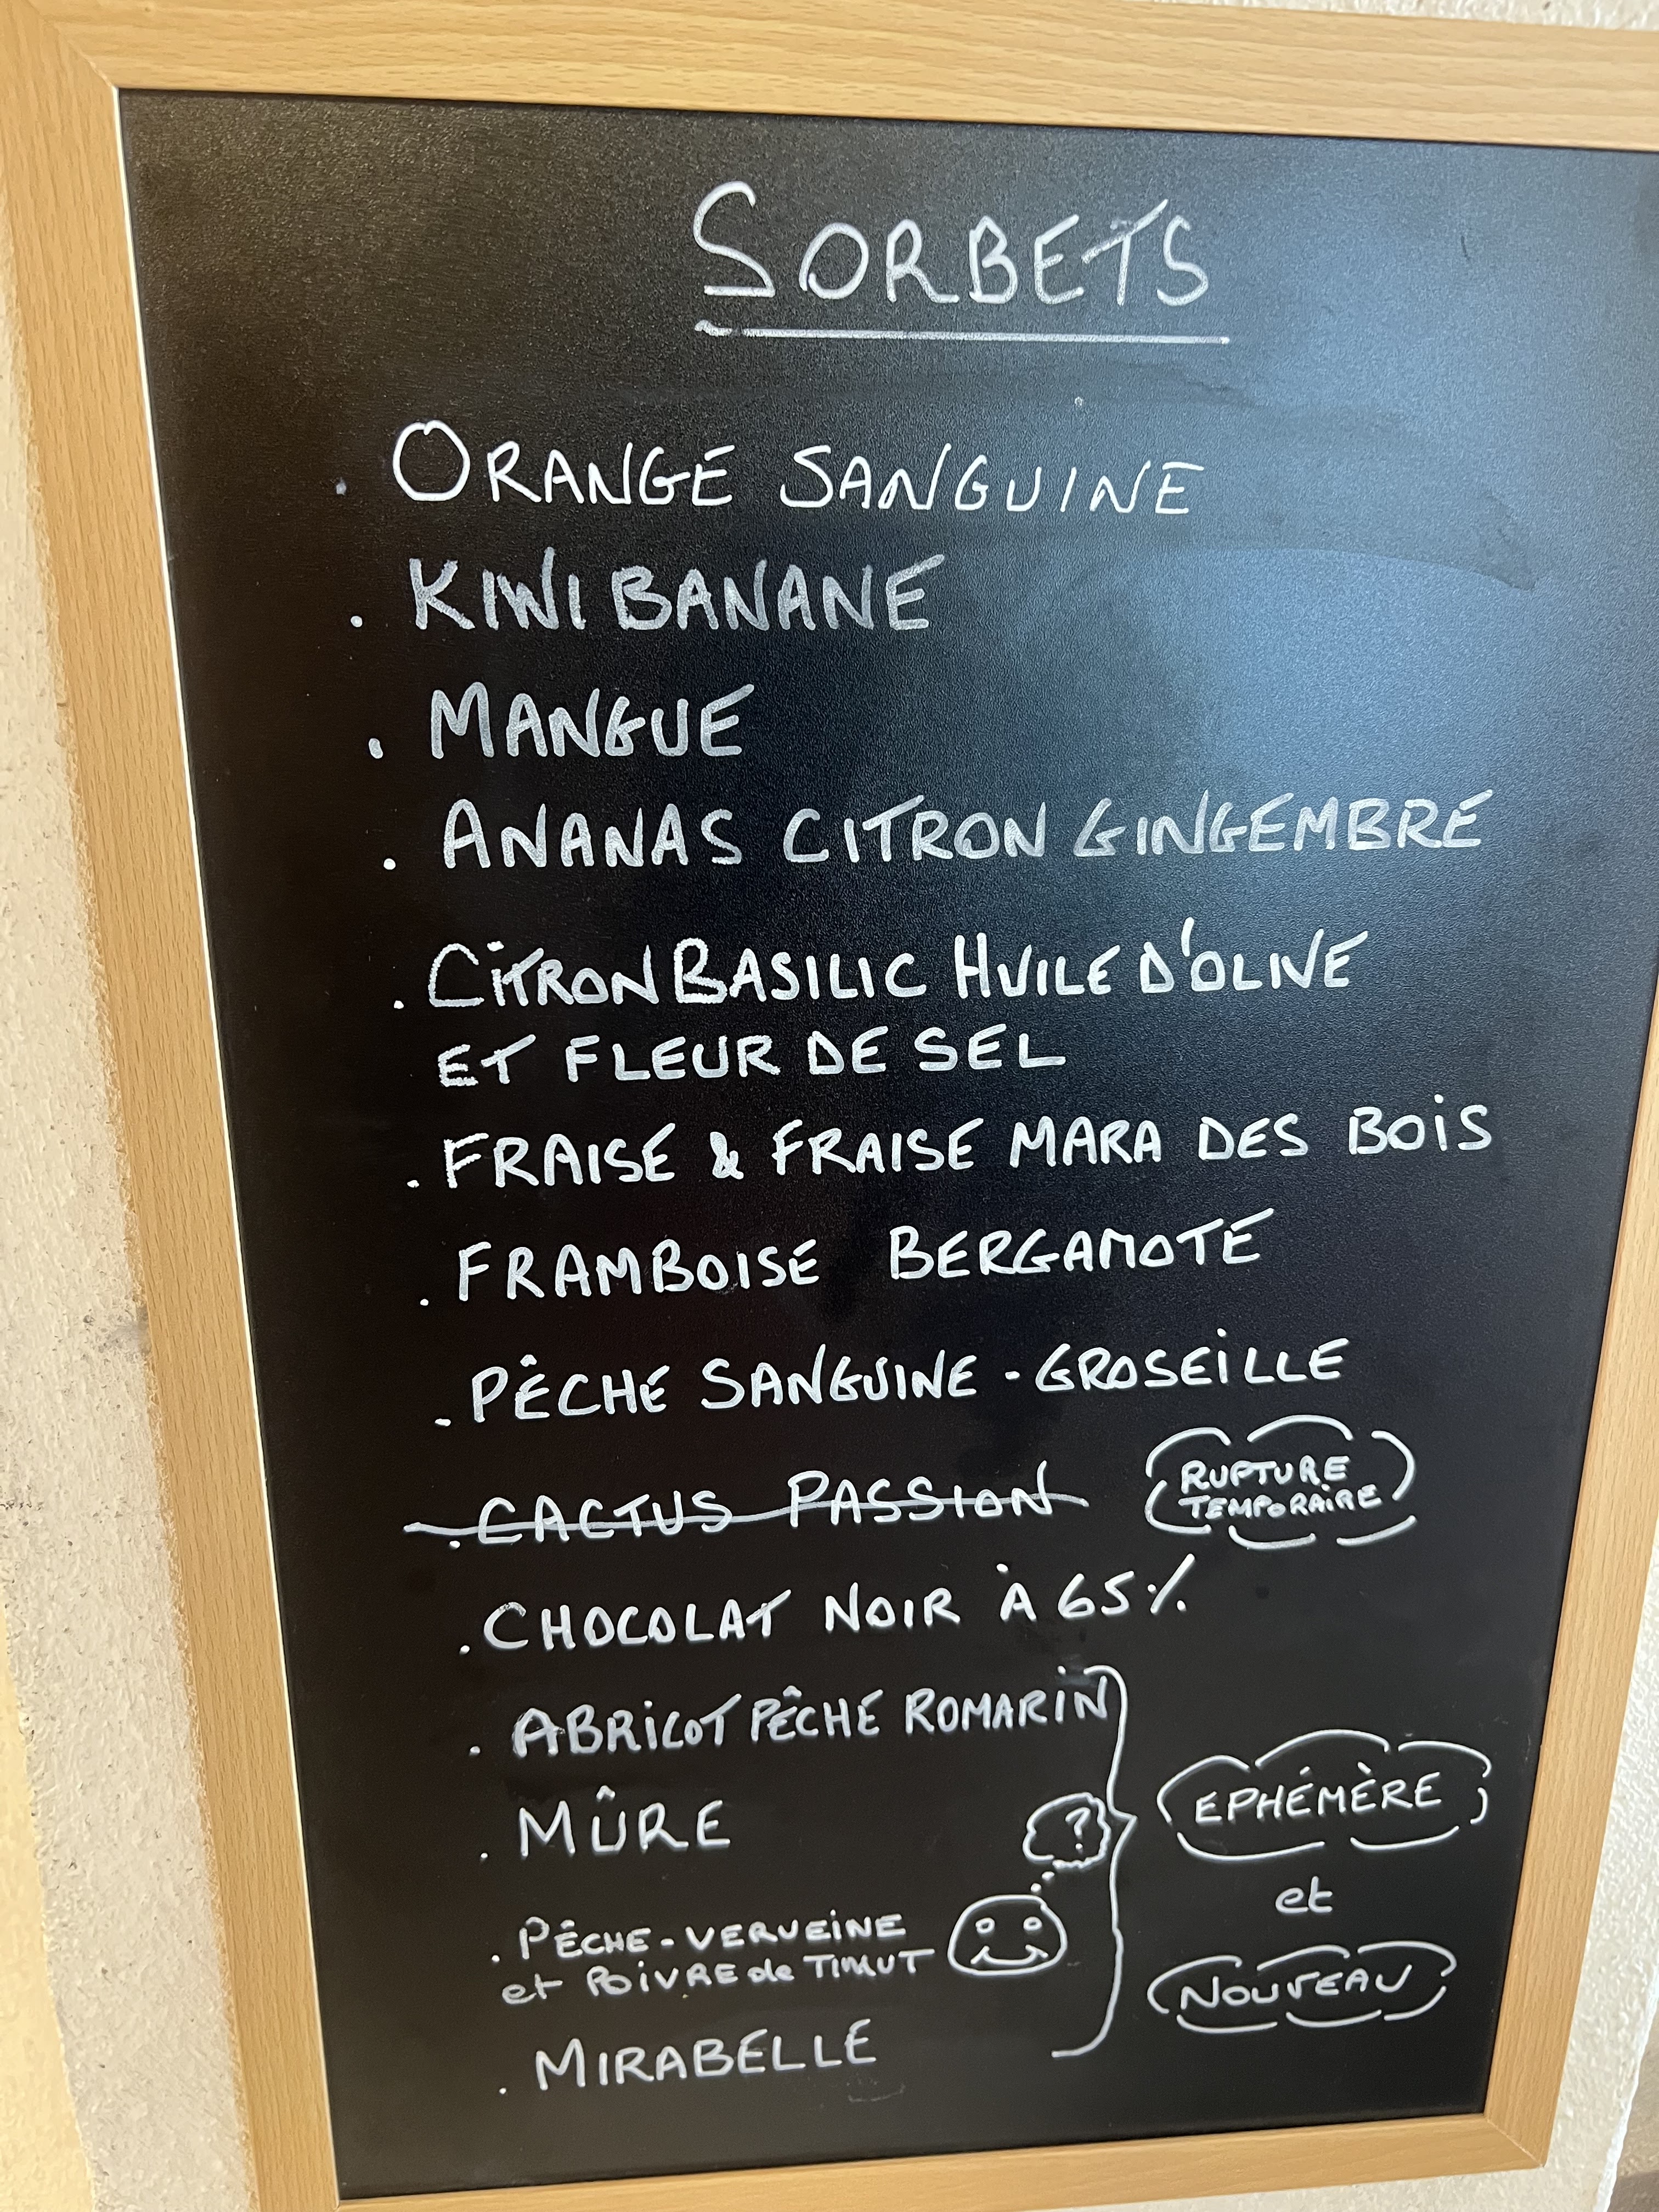 SORBETS
. ORANGE SANGUINE
. KIWI BANANE
. MANGUE
. ANANAS CITRON GINGEMBRE
. CITRON BASILIC HUILE D'OLIVE
ET FLEUR DE SEL
. FRAISE & FRAISE MARA DES BOIS
. FRAMBOISE BERGAMOTE
. PÊCHE SANGUINE - GROSEILLE
. CACTUS PASSION
RUPTURE
TEMPORAIRE
. CHOCOLAT NOIR À 65%
. ABRICOT PÊCHE ROMARIN
. MÛRE
?
. PÊCHE - VERVEINE
et POIVRE de TIMUT
. MIRABELLE
EPHÉMÈRE
et
NOUVEAU